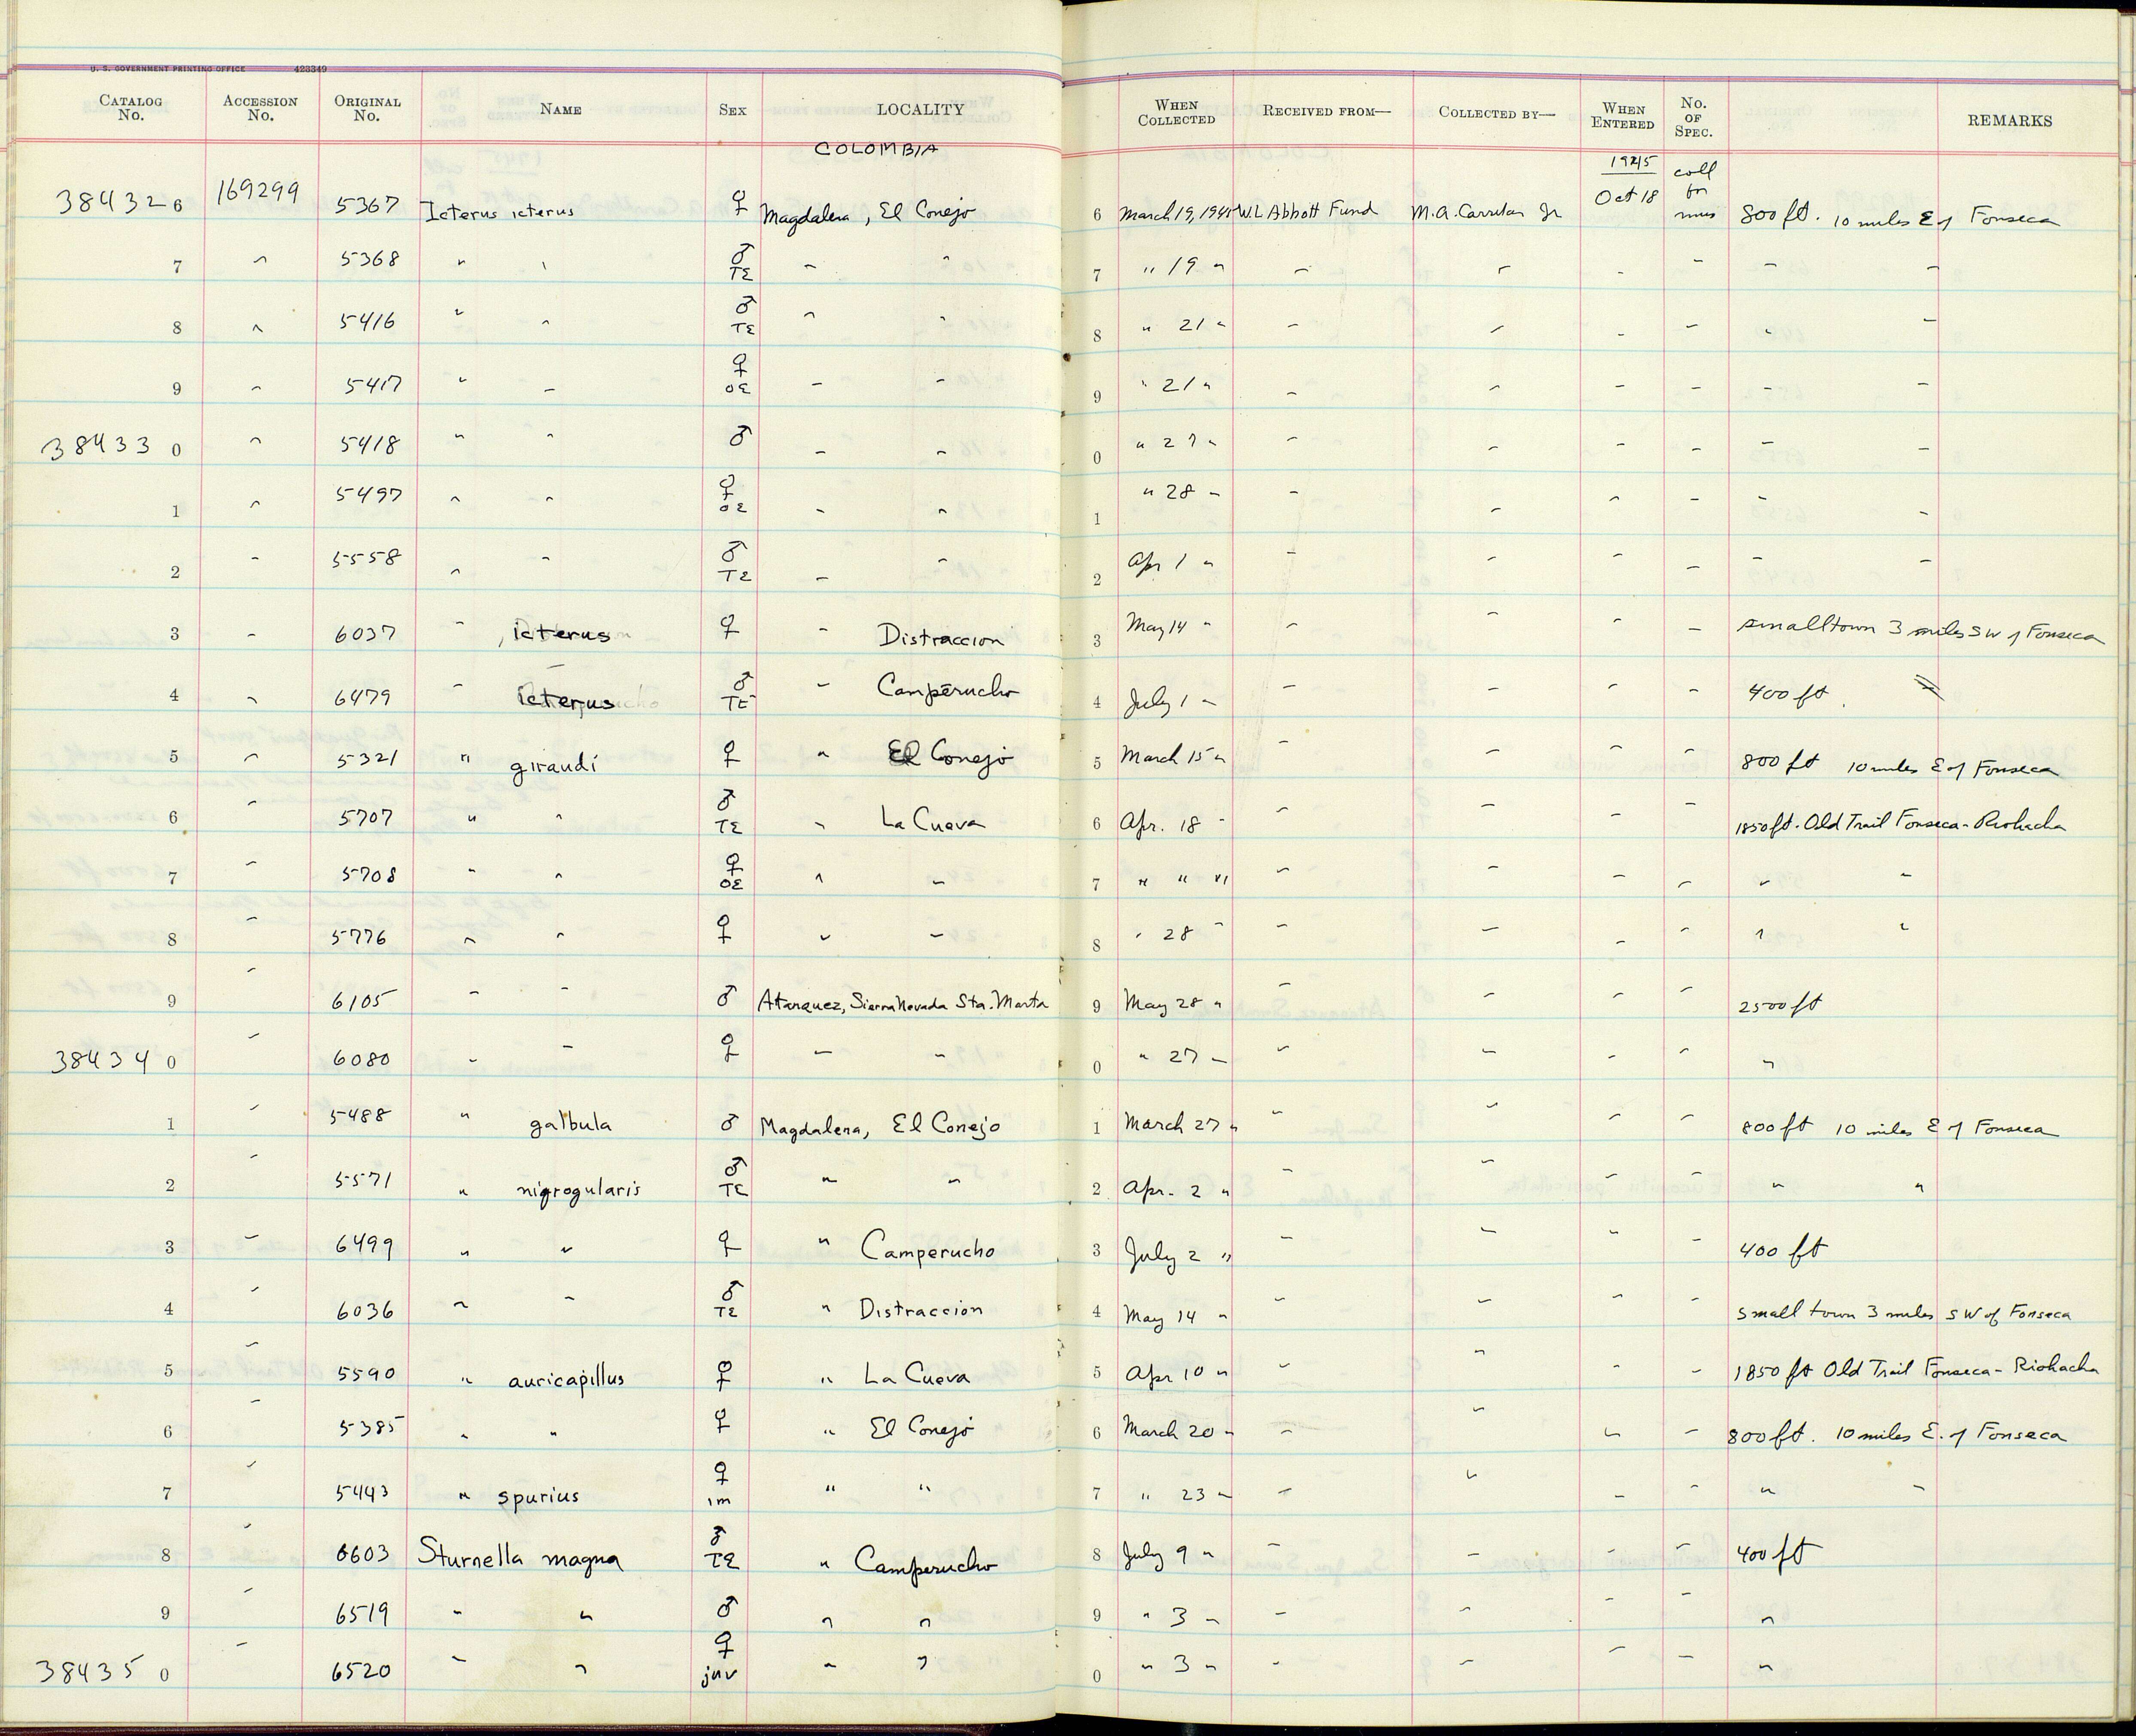 U. S. GOVERNMENT PRINTING OFFICE 423349
CATALOG No. ACCESSION No. ORIGINAL No. NAME SEX LOCALITY WHEN COLLECTED RECEIVED FROM— COLLECTED BY— WHEN ENTERED No. OF SPEC. REMARKS
COLOMBIA 1945 coll
384326 169299 5367 Icterus icterus ♀ Magdalena, El Conejo 6 March 19, 1945 W.L. Abbott Fund M.A. Carriker Jr Oct 18 for mus 800 ft. 10 miles E of Fonseca
7 " 5368 " " ♂ TE " " 7 " 19 " " " " " " "
8 " 5416 " " ♂ TE " " 8 " 21 " " " " " " "
9 " 5417 " " ♀ OE " " 9 " 21 " " " " " " "
384330 " 5418 " " ♂ " " 0 " 27 " " " " " " "
1 " 5497 " " ♀ OE " " 1 " 28 " " " " " " "
2 " 5558 " " ♂ TE " " 2 Apr 1 " " " " " " "
3 " 6037 " icterus ♀ " Distraccion 3 May 14 " " " " " small town 3 miles SW of Fonseca
4 " 6479 " icterus ♂ TE " Camperucho 4 July 1 " " " " " 400 ft.
5 " 5321 " giraudi ♀ " El Conejo 5 March 15 " " " " " 800 ft 10 miles E of Fonseca
6 " 5707 " " ♂ TE " La Cueva 6 Apr. 18 " " " " " 1850 ft. Old Trail Fonseca - Riohacha
7 " 5708 " " ♀ OE " " 7 " " " " " " " " "
8 " 5776 " " ♀ " " 8 " 28 " " " " " " "
9 " 6105 " " ♂ Atanquez, Sierra Nevada Sta. Marta 9 May 28 " " " " " 2500 ft
384340 " 6080 " " ♀ " " 0 " 27 " " " " " "
1 " 5488 " galbula ♂ Magdalena, El Conejo 1 March 27 " " " " " 800 ft 10 miles E of Fonseca
2 " 5571 " nigrogularis ♂ TE " " 2 Apr. 2 " " " " " " "
3 " 6499 " " ♀ " Camperucho 3 July 2 " " " " " 400 ft
4 " 6036 " " ♂ TE " Distraccion 4 May 14 " " " " " small town 3 miles SW of Fonseca
5 " 5590 " auricapillus ♀ " La Cueva 5 Apr 10 " " " " " 1850 ft Old Trail Fonseca - Riohacha
6 " 5385 " " ♀ " El Conejo 6 March 20 " " " " " 800 ft. 10 miles E. of Fonseca
7 " 5443 " spurius ♀ im " " 7 " 23 " " " " " " "
8 " 6603 Sturnella magna ♂ TE " Camperucho 8 July 9 " " " " " 400 ft
9 " 6519 " " ♂ " " 9 " 3 " " " " " "
384350 " 6520 " " ♀ juv " " 0 " 3 " " " " " "